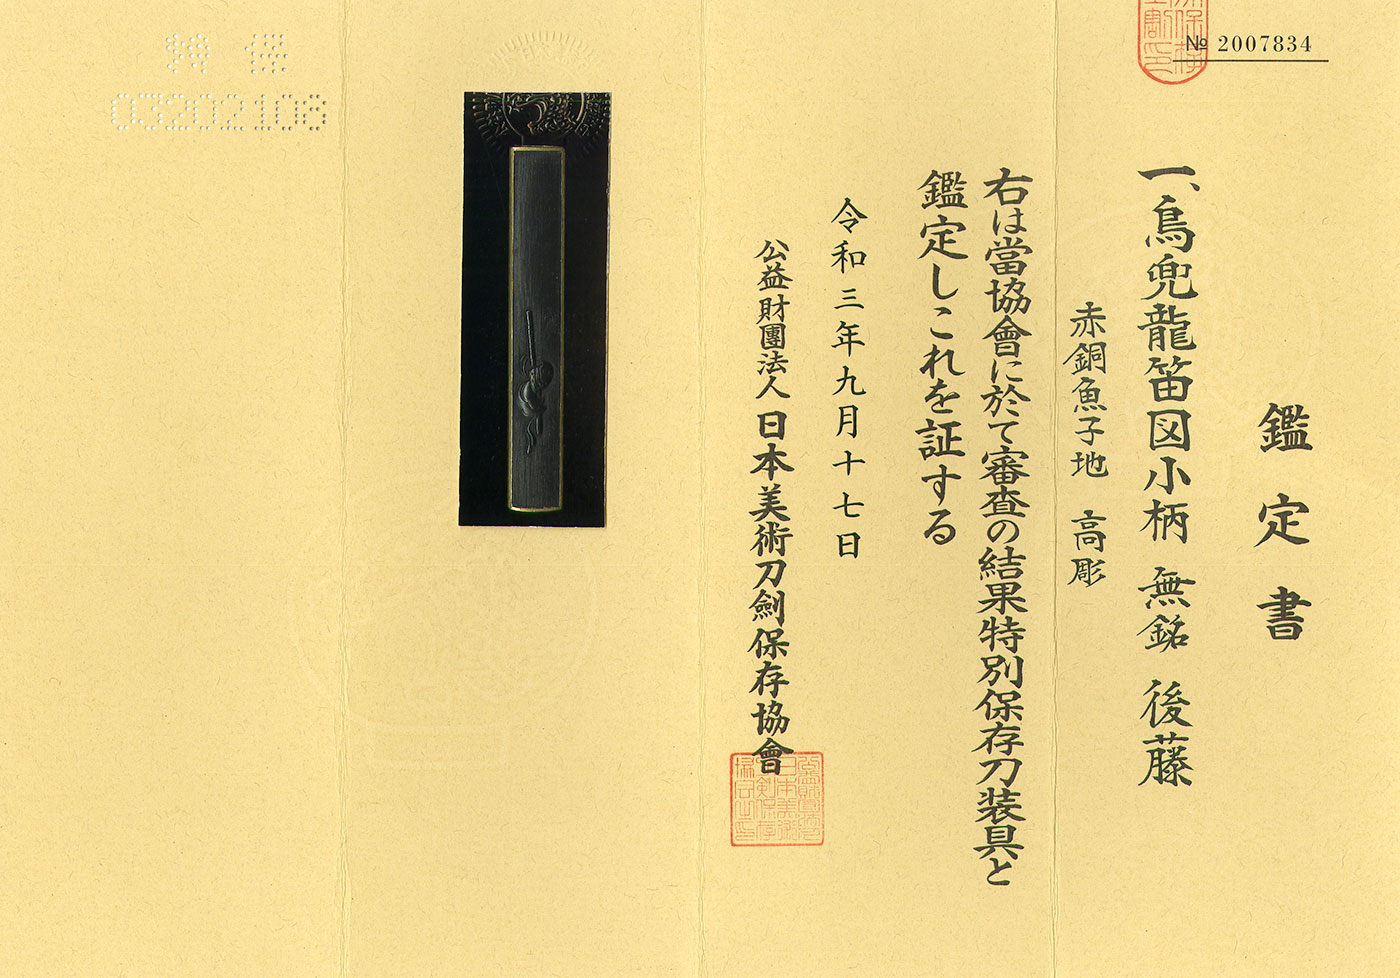 № 2007834
鑑定書
一、鳥兜龍笛図小柄 無銘 後藤
赤銅魚子地 高彫
右は當協會に於て審査の結果特別保存刀装具と
鑑定しこれを証する
令和三年九月十七日
公益財團法人 日本美術刀劍保存協會
03202108